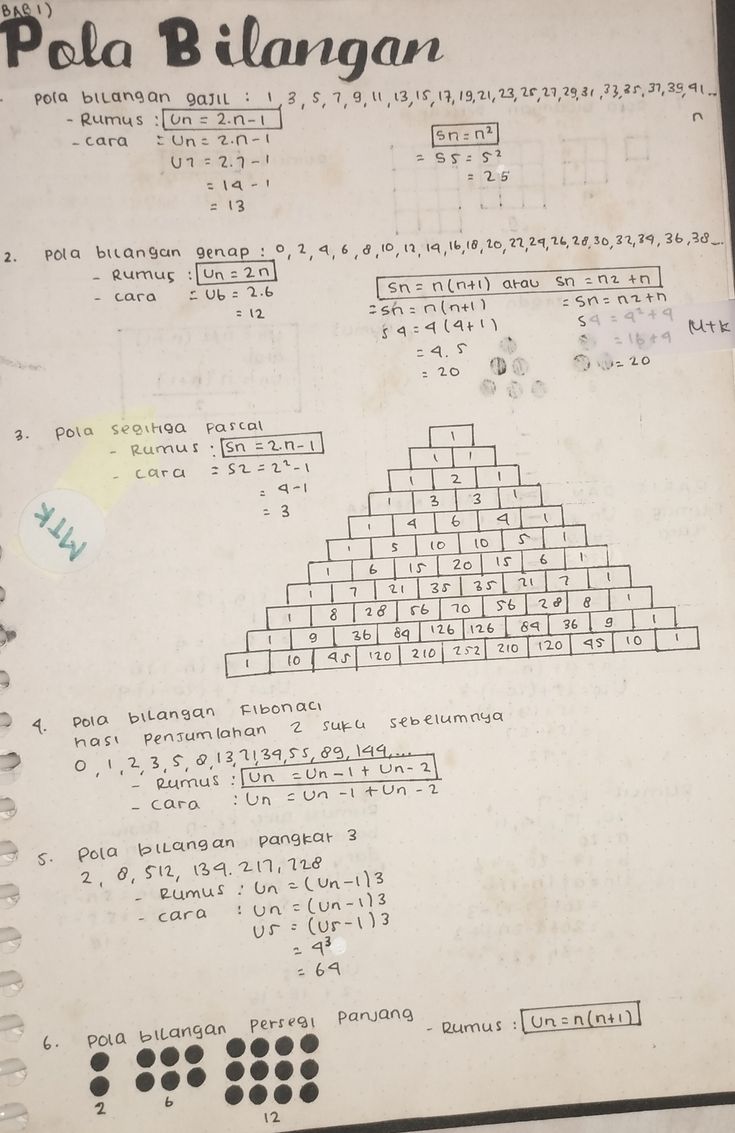 BAB 1)
Pola Bilangan
Pola bilangan gajil : 1, 3, 5, 7, 9, 11, 13, 15, 17, 19, 21, 23, 25, 27, 29, 31, 33, 35, 37, 39, 41...
n
- Rumus : Un = 2.n-1
- cara = Un = 2.n-1
U7 = 2.7-1
= 14 - 1
= 13
Sn = n²
= S5 = 5²
= 25
2. Pola bilangan genap : 0, 2, 4, 6, 8, 10, 12, 14, 16, 18, 20, 22, 24, 26, 28, 30, 32, 34, 36, 38...
- Rumus : Un = 2n
- cara = U6 = 2.6
= 12
Sn = n(n+1) atau Sn = n2 + n
= Sn = n(n+1)
S4 = 4(4+1)
= 4.5
= 20
= Sn = n2 + n
S4 = 4² + 4
= 16 + 4
= 20
MtK
3. Pola segitiga Pascal
- Rumus : Sn = 2.n-1
- cara = S2 = 2²-1
= 4-1
= 3
MTK
1
1 1
1 2 1
1 3 3 1
1 4 6 4 1
1 5 10 10 5 1
1 6 15 20 15 6 1
1 7 21 35 35 21 7 1
1 8 28 56 70 56 28 8 1
1 9 36 84 126 126 84 36 9 1
1 10 45 120 210 252 210 120 45 10 1
4. Pola bilangan Fibonaci
hasi Penjumlahan 2 suku sebelumnya
0, 1, 2, 3, 5, 8, 13, 21, 34, 55, 89, 144, ...
- Rumus : Un = Un-1 + Un-2
- cara : Un = Un-1 + Un-2
5. Pola bilangan Pangkat 3
2, 8, 512, 134.217, 728
- Rumus : Un = (Un-1)3
- cara : Un = (Un-1)3
U5 = (U5-1)3
= 4³
= 64
6. Pola bilangan Persegi Panjang
- Rumus : Un = n(n+1)
2 6 12